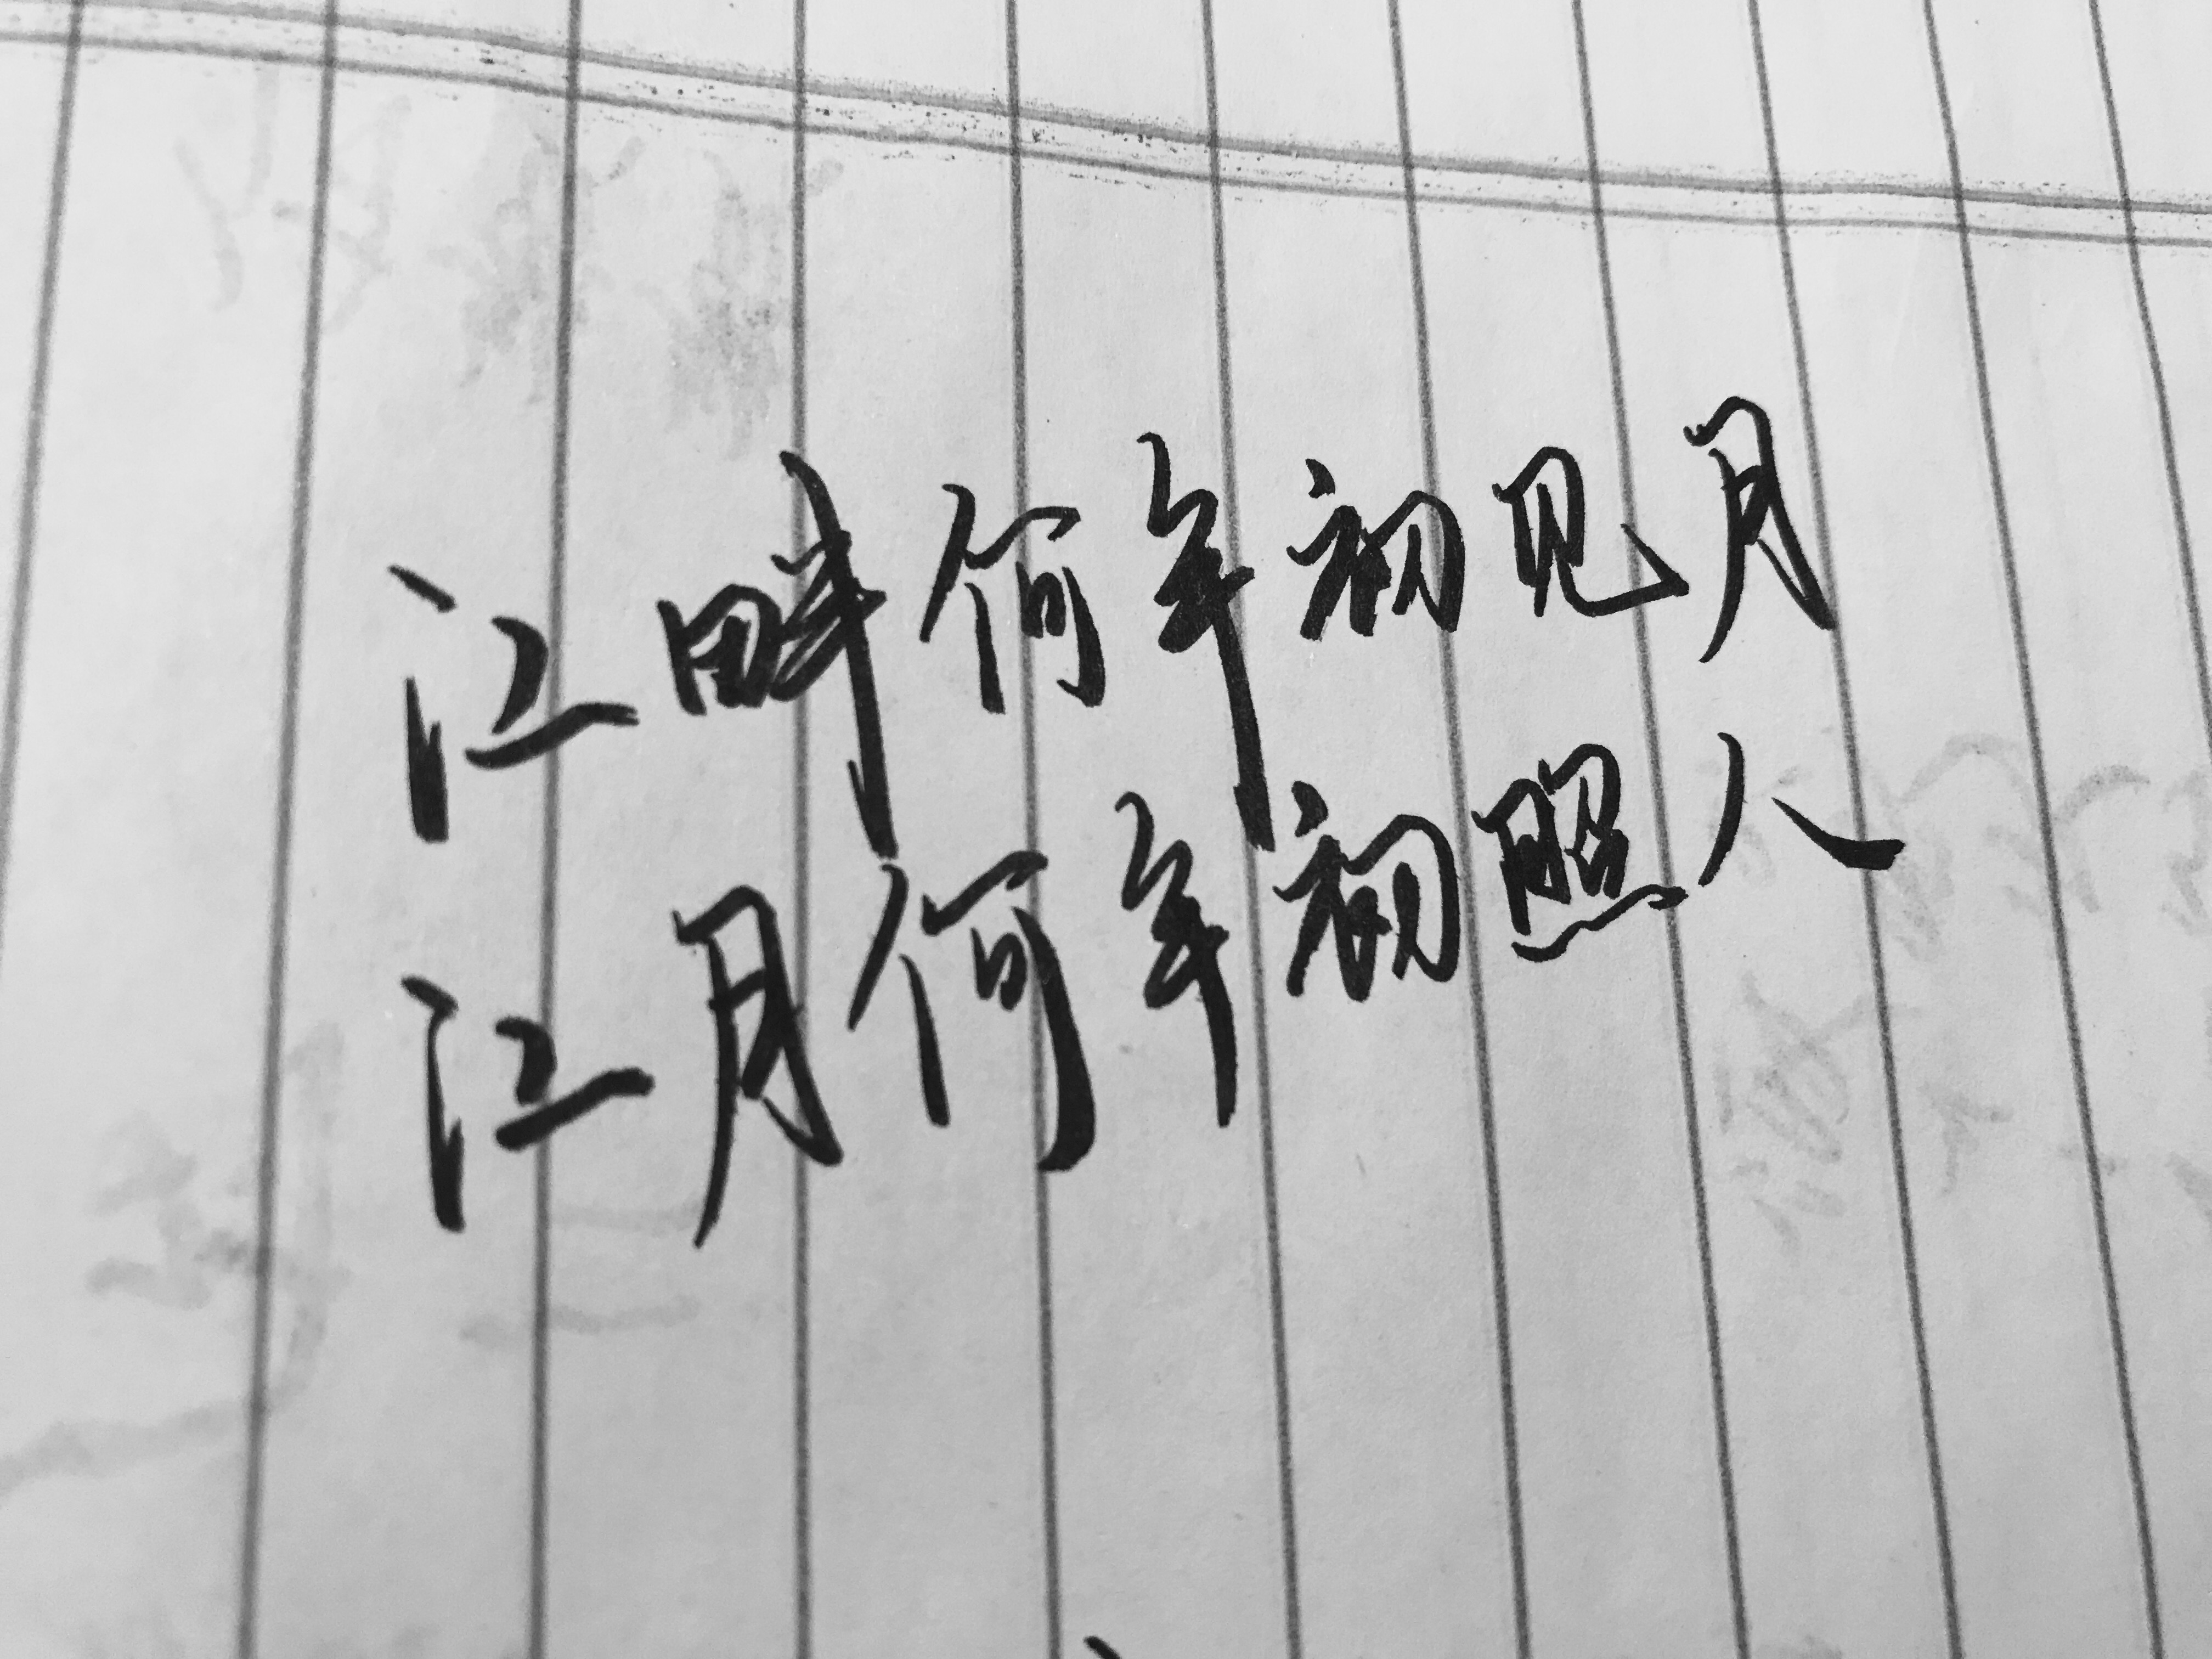 江畔何年初见月
江月何年初照人